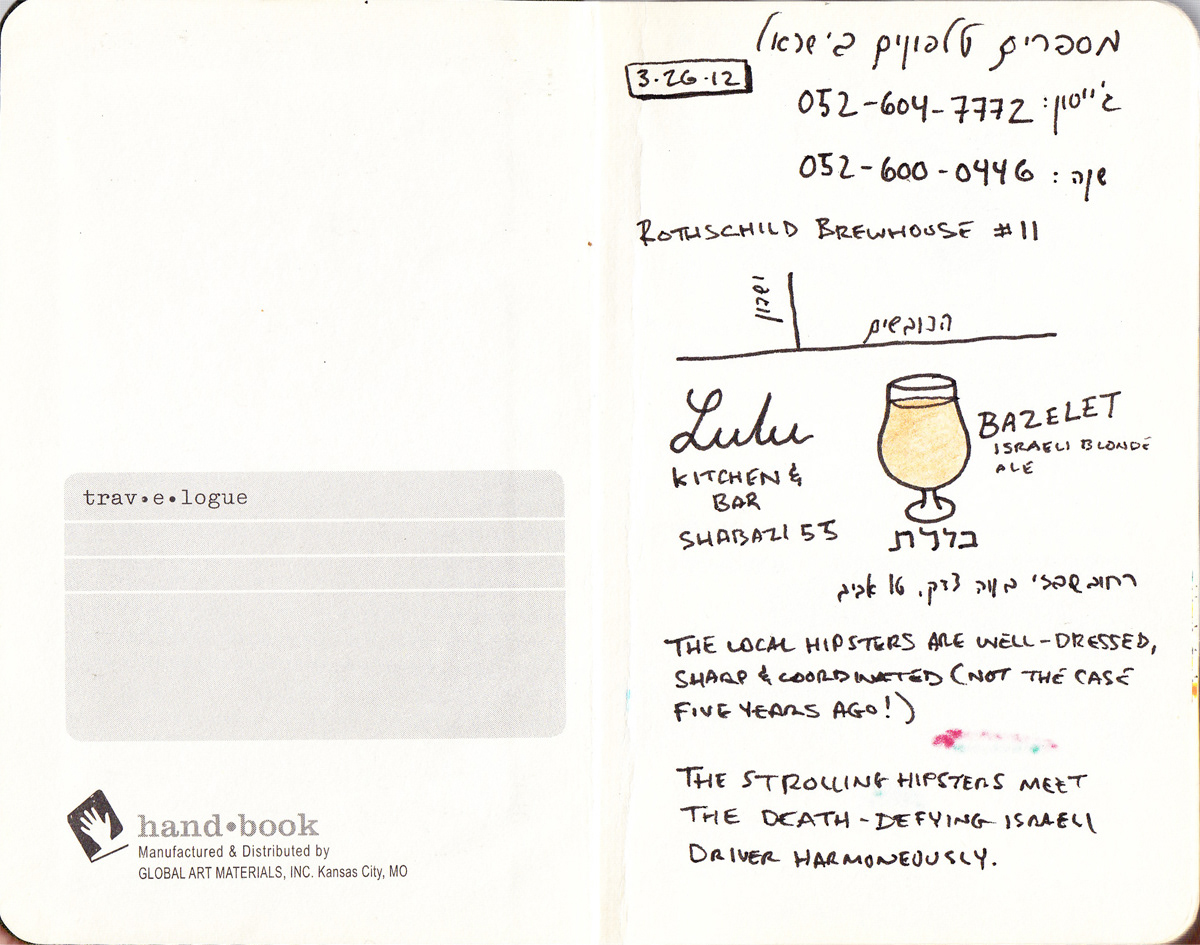 trav•e•logue
hand•book
Manufactured & Distributed by
GLOBAL ART MATERIALS, INC. Kansas City, MO
מספרים טלפונים בישראל
3·26·12
ג'ייסון: 052-604-7772
: 052-600-0446
ROTHSCHILD BREWHOUSE #11
הכובשים
Lulu
KITCHEN &
BAR
SHABAZI 55
BAZELET
ISRAELI BLONDE
ALE
בזלת
רחוב שבזי בנוה צדק, תל אביב
THE LOCAL HIPSTERS ARE WELL-DRESSED,
SHARP & COORDINATED (NOT THE CASE
FIVE YEARS AGO!)
THE STROLLING HIPSTERS MEET
THE DEATH-DEFYING ISRAELI
DRIVER HARMONEOUSLY.